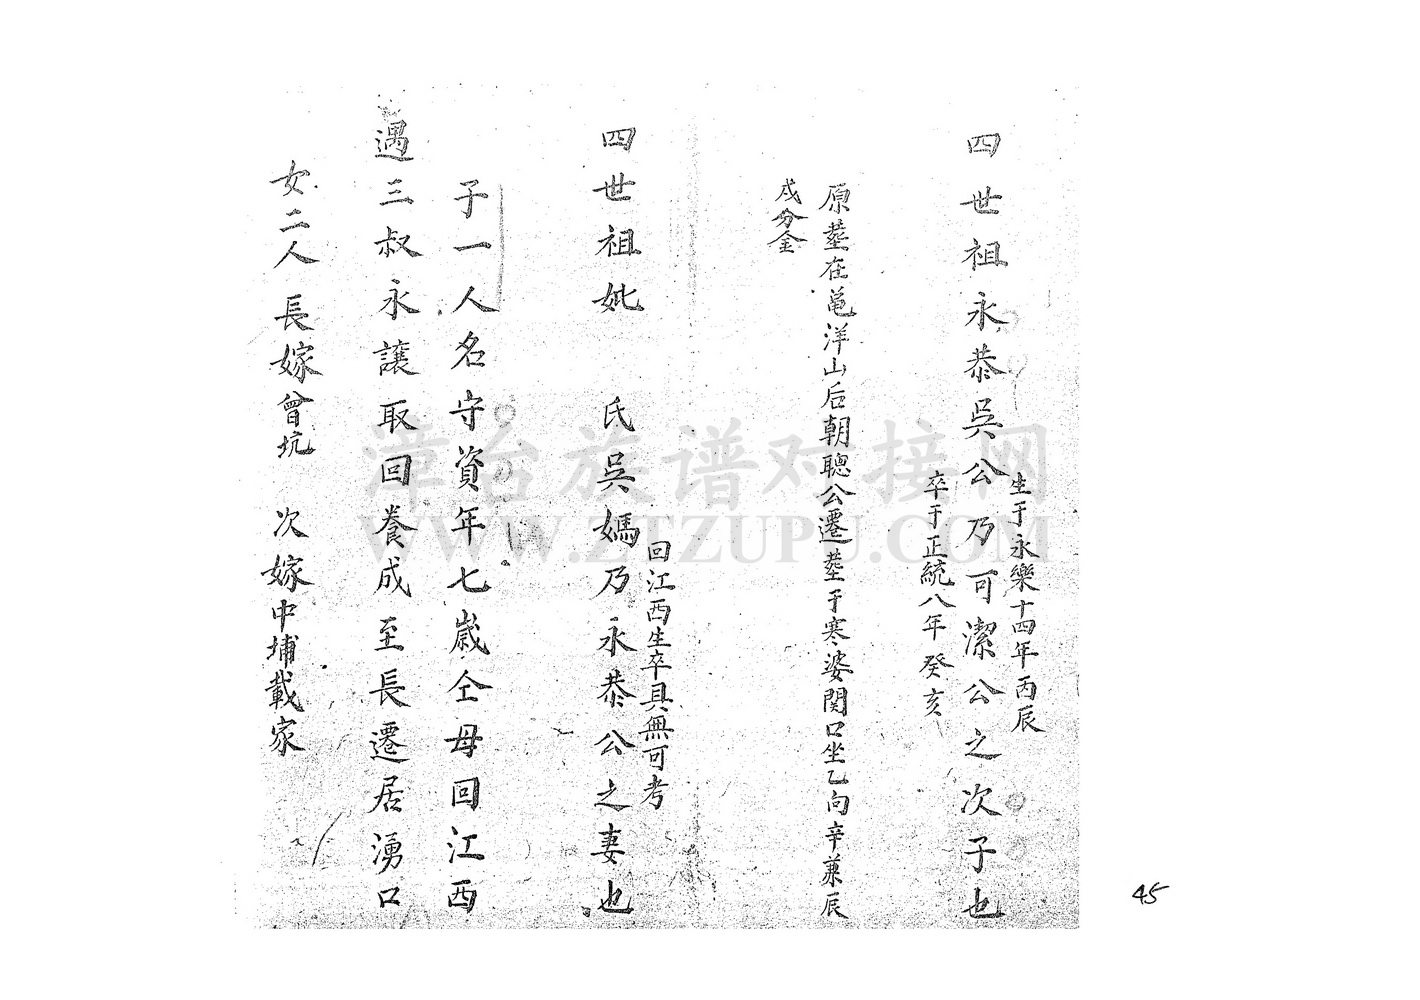 四世祖永恭吳公乃可潔公之次子也
生于永樂十四年丙辰
卒于正統八年癸亥
原塟在亀洋山后朝聰公遷塟于寒婆関口坐乙向辛兼辰
戌分金
四世祖妣 氏吳媽乃永恭公之妻也
回江西生卒具無可考
子一人名守資年七歲仝母回江西
遇三叔永讓取回養成至長遷居湧口
女二人長嫁曾坑 次嫁中埔載家
漳台族谱对接网
WWW.ZTZUPU.COM
45